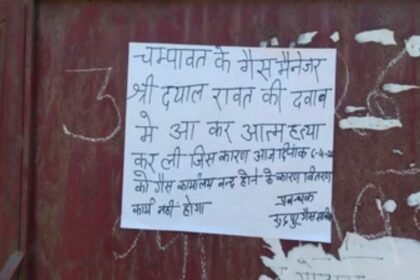 चम्पावत के गैस मैनेजर
श्री दयाल रावत की दवाब
मे आ कर आत्म हत्या
कर ली जिस कारण आज दिनांक
को गैस कार्यालय बन्द होने के कारण वितरण
कार्य नही होगा
प्रबन्धक
गैस
3